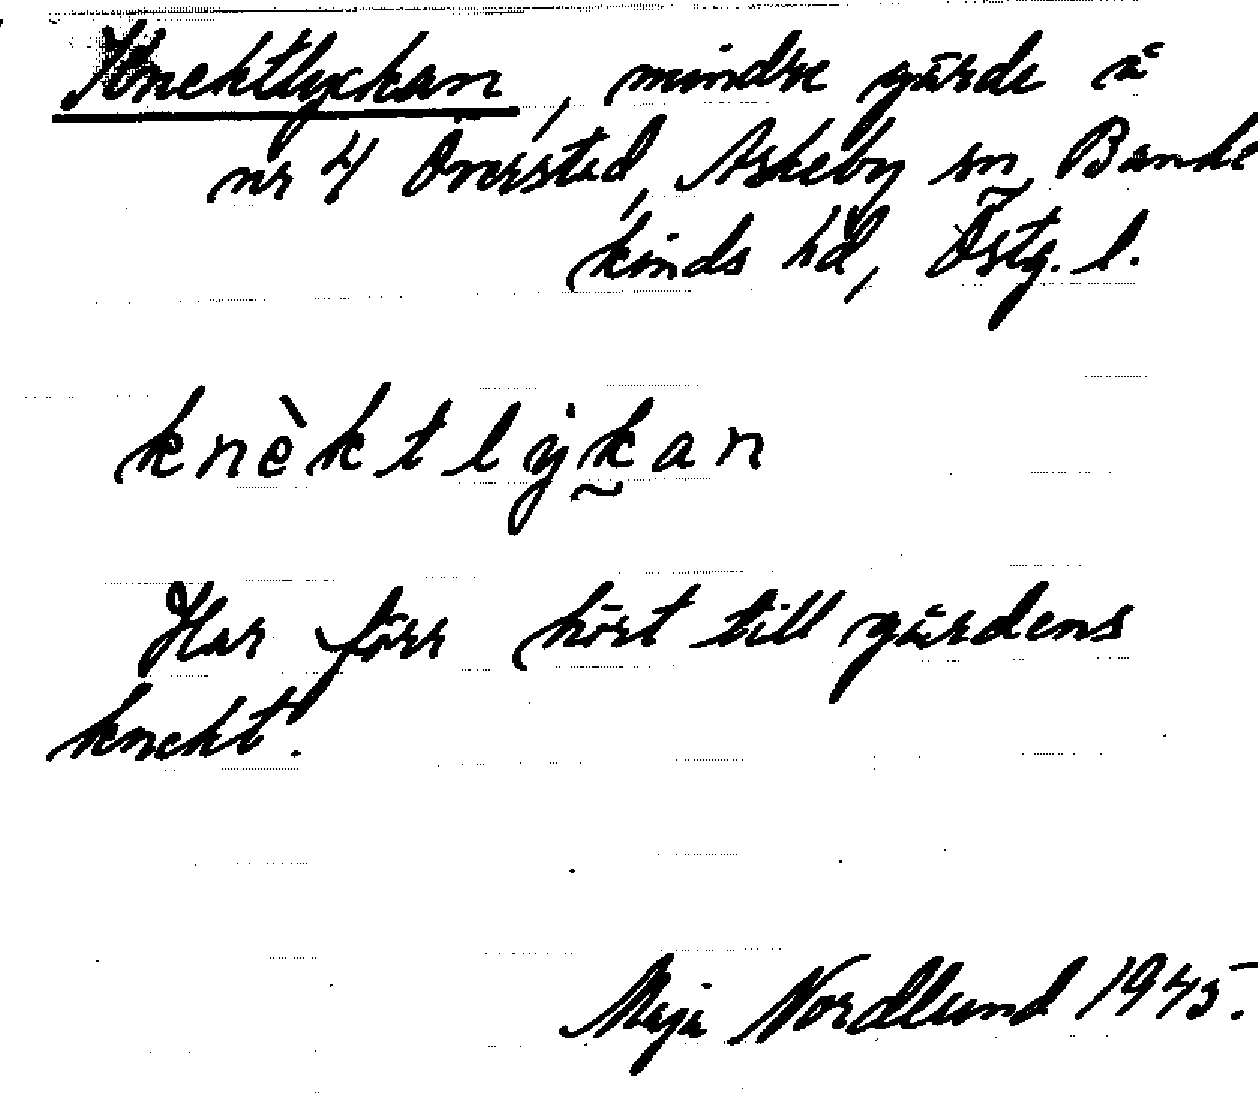 Knektlyckan, mindre gärde å
nr 4 Överstad, Askeby sn, Banke
kinds hd, Östg. l.
knèktlykan
Har förr hört till gårdens
knekt.
Maja Nordlund 1945.